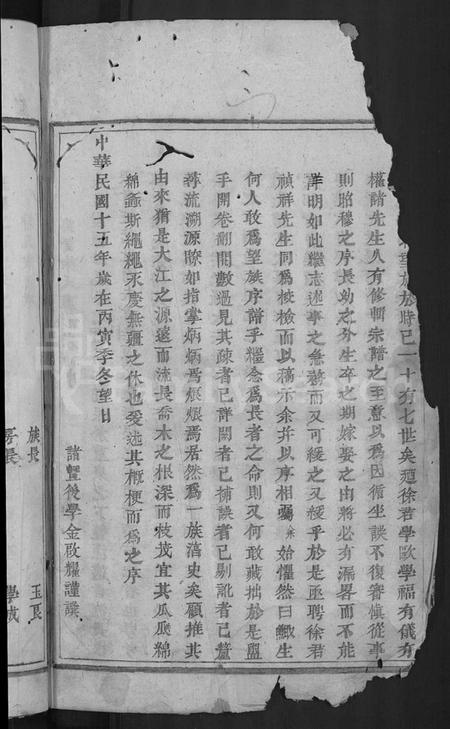 族於時已一十有七世矣迺徐君學歐學福有儀有
權諸先生久有修輯宗譜之主意以為因循坐誤不復審愼從事
則昭穆之序長幼之分生卒之期嫁娶之由將必有漏畧而不能
詳明如此繼志述事之急務而又可緩之又緩乎於是亟聘徐君
禎祥先生同為校檢而以稿示余并以序相囑余始懼然曰鯫生
何人敢為望族序譜乎繼念為長者之命則又何敢藏拙於是盥
手開卷翻閱數過見其疎者已詳闕者已補誤者已剔訛者已釐
尋流溯源瞭如指掌炳炳焉煨煨焉居然為一族舊史矣顧推其
由來猶是大江之源遠而流長喬木之根深而枝茂宜其瓜瓞綿
綿螽斯繩繩永慶無疆之休也爰述其概梗而為之序
中華民國十五年歲在丙寅季冬望日
諸暨後學金啟耀謹譔
族長
玉良
房長
學成